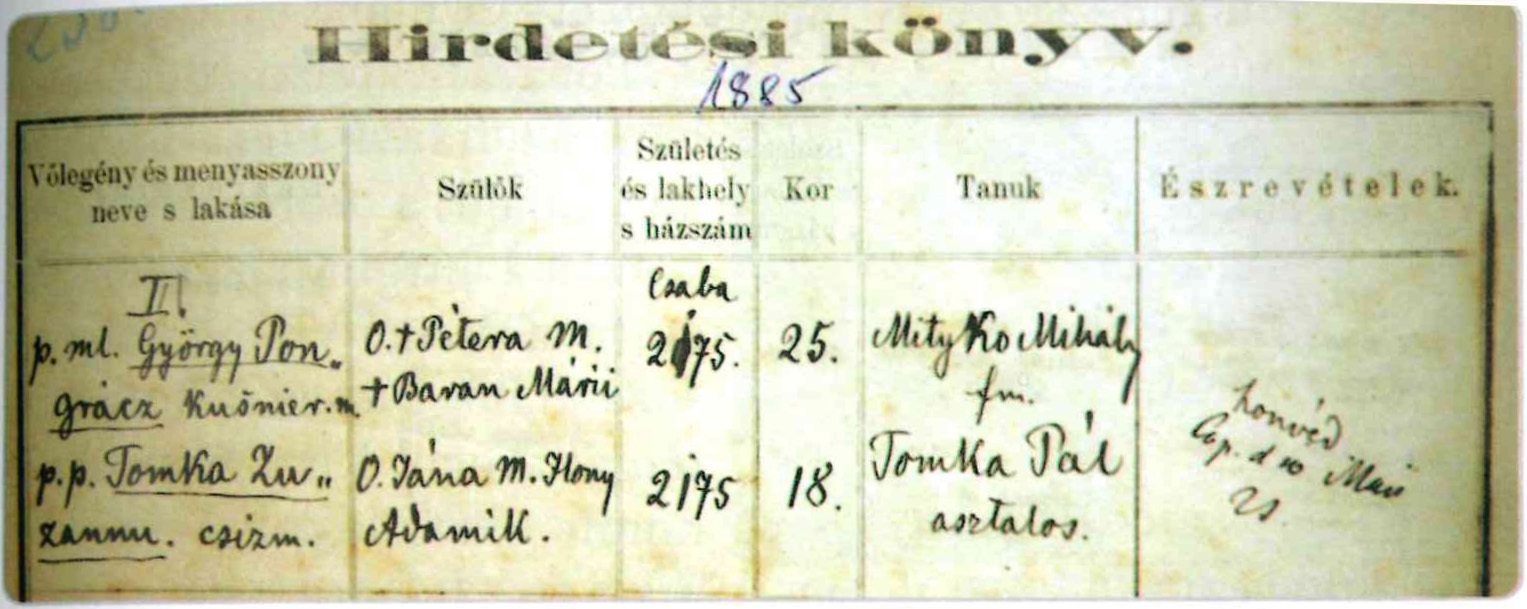 Hirdetési könyv.
1885
Vőlegény és menyasszony
neve s lakása
Szülők
Születés
és lakhely
s házszám
Kor
Tanuk
Észrevételek.
II.
p. ml. György Pon„
grácz Kušnier. m.
O. † Pétera M.
† Baran Márii
Csaba
2175.
25.
Mityko Mihály
fm.
p. p. Tomka Zu„
zannu. csizm.
O. Jána M. Ilony
Adamik.
2175
18.
Tomka Pál
asztalos.
honvéd
Cop. d 10 Maii